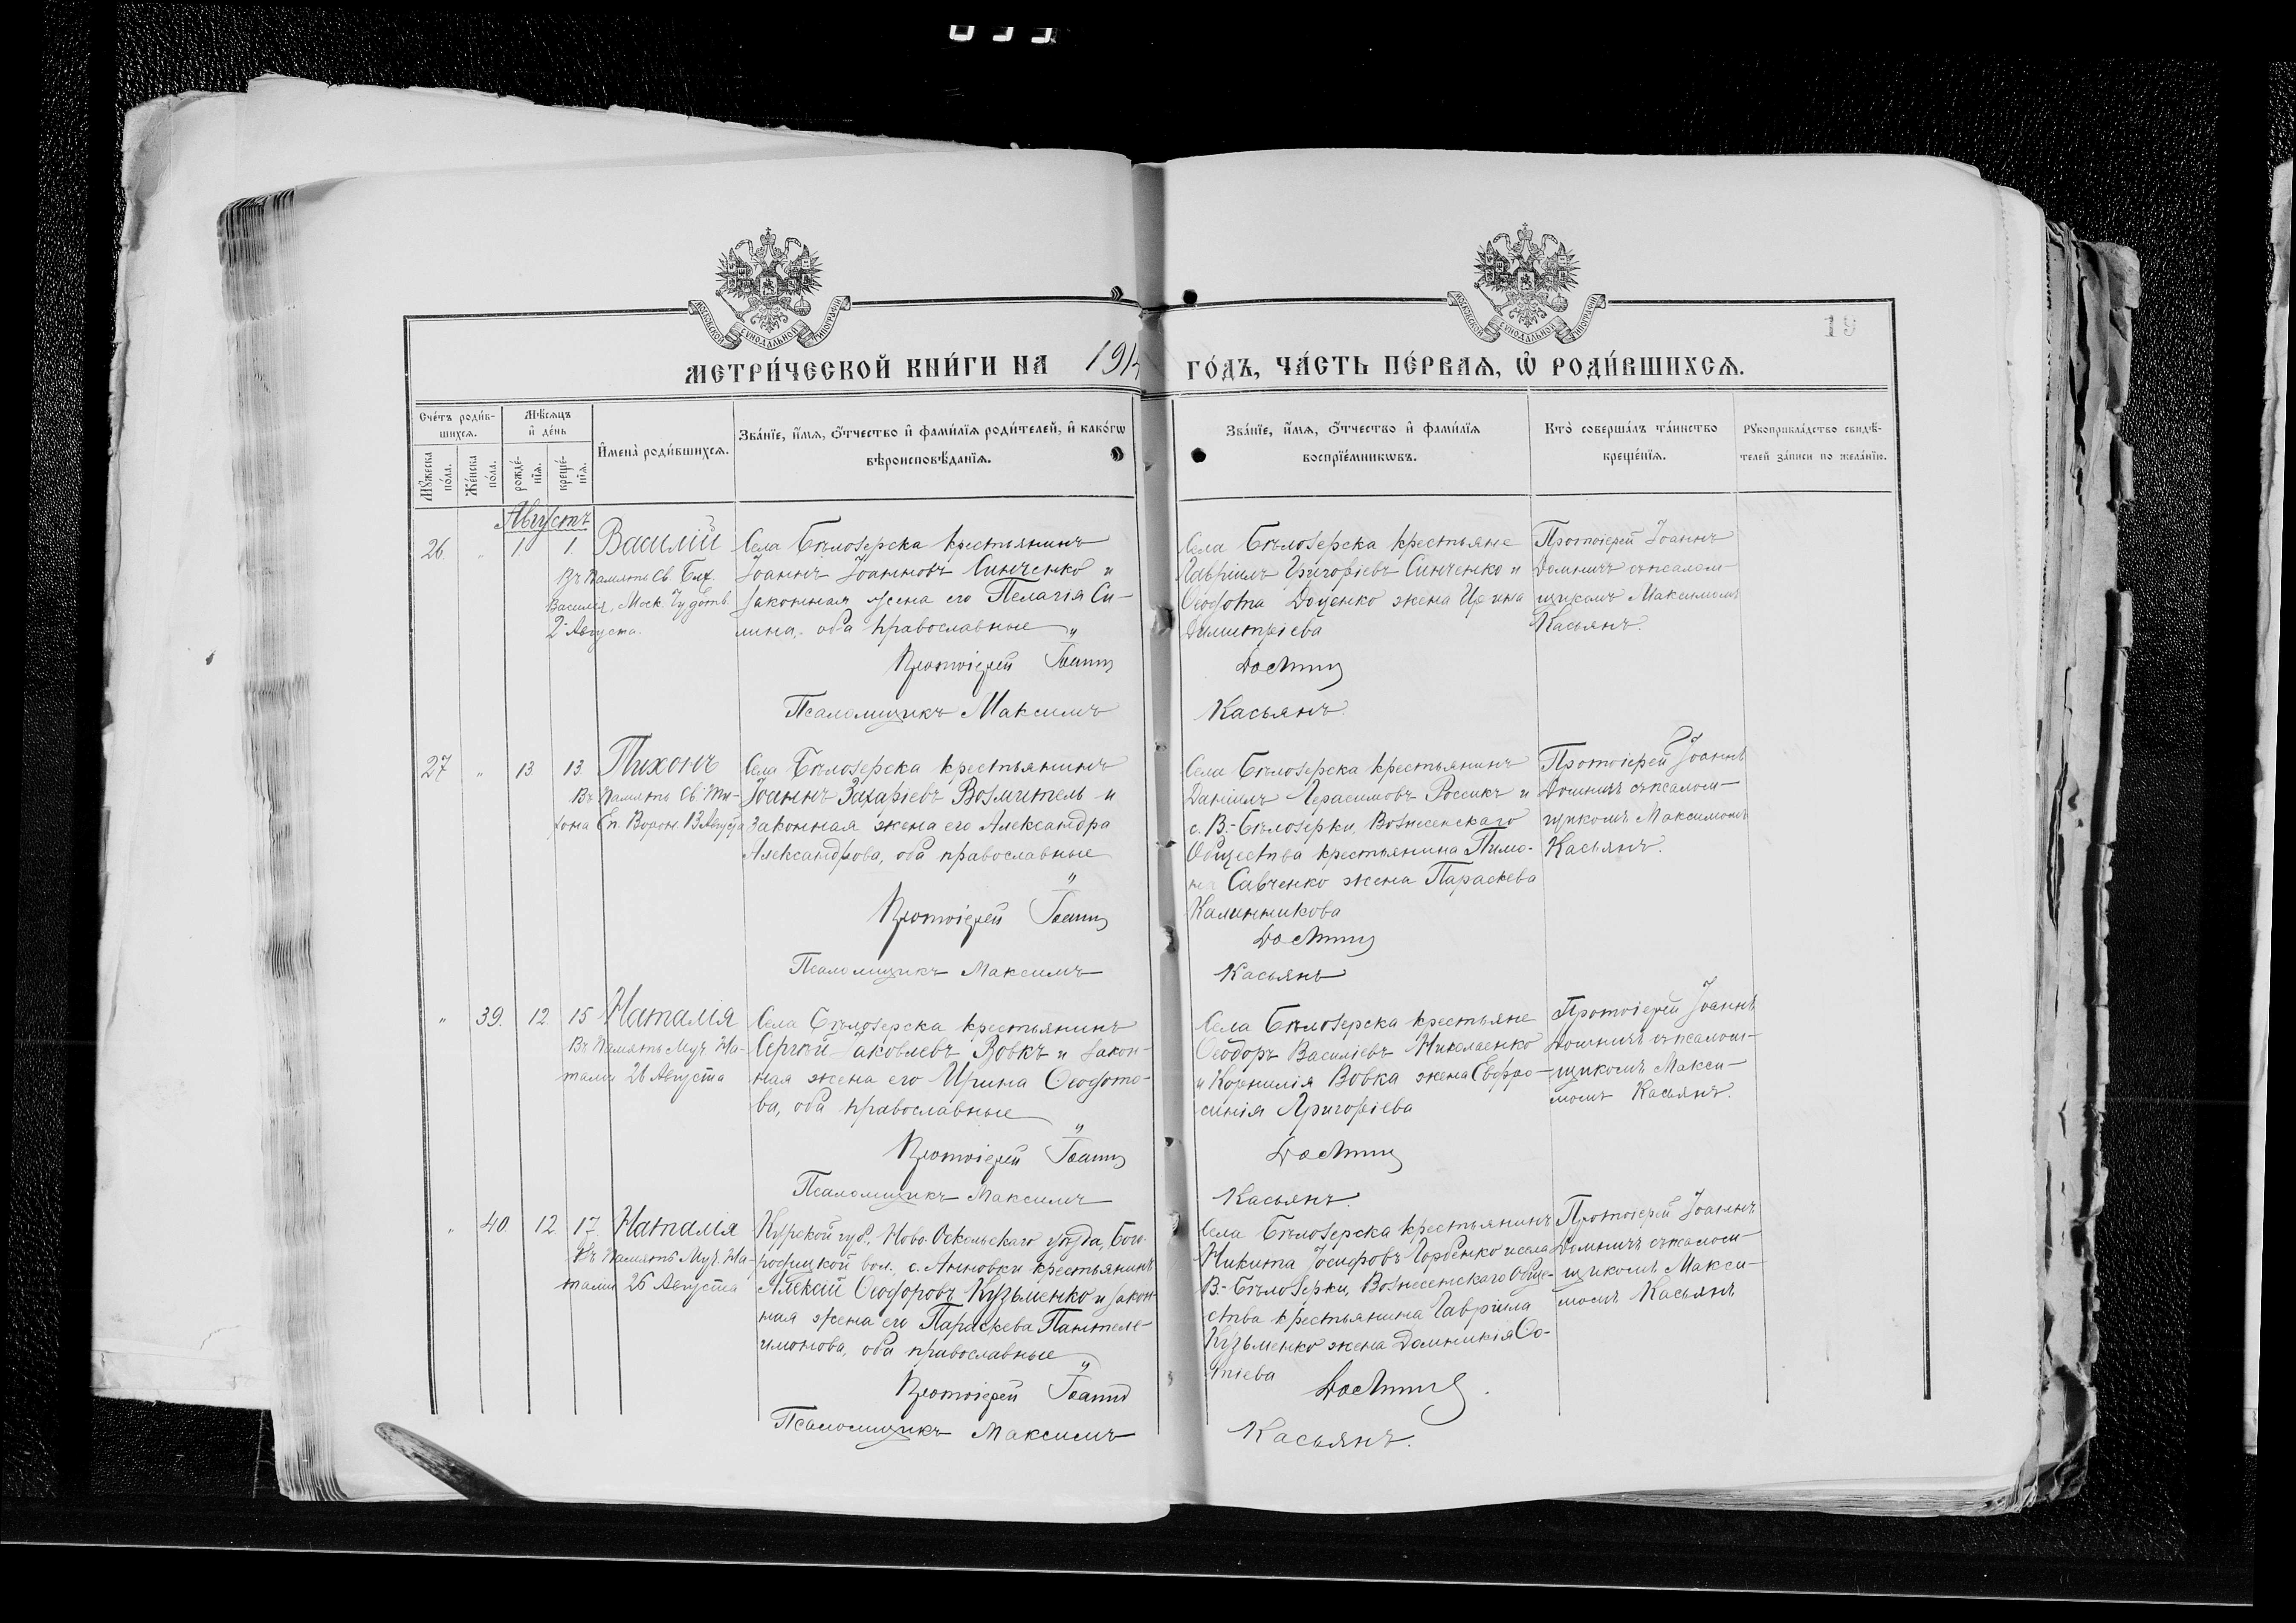 МЕТРИ́ЧЕСКОЙ КНИ́ГИ НА 1914 ГО́ДЪ, ЧА́СТЬ ПЕ́РВАЯ, Ѽ РОДИ́ВШИХСЯ.
19
МОСКОВСКОЙ СѴНОДАЛЬНОЙ ТИПОГРАФІИ
МОСКОВСКОЙ СѴНОДАЛЬНОЙ ТИПОГРАФІИ
Сче́тъ роди́в-
шихся.
Мѣ́сяцъ
и҆ де́нь
Мꙋ́жеска
по́ла.
Же́нска
по́ла.
рожде́-
нїя.
креще́-
нїя.
И҆мена̀ роди́вшихся.
Зва́нїе, и҆́мя, ѻ҆́тчество и҆ фами́лїя роди́телей, и҆ како́гѡ
вѣроисповѣ́данїя.
Зва́нїе, и҆́мя, ѻ҆́тчество и҆ фами́лїя
воспрїе́мникѡвъ.
Кто̀ соверша́лъ та́инство
креще́нїя.
Рꙋкоприкла́дство свидѣ́-
телей за́писи по жела́нїю.
Августъ
26. " 1. 1. Василій
Въ память Св. Блж.
Василія, Моск. Чудотв.
2 Августа.
Села Бѣлозерска крестьянинъ
Іоаннъ Іоанновъ Синченко и
законная жена его Пелагія Си-
лина, оба православные "
Протоіерей Іоаннъ
Псаломщикъ Максимъ
Села Бѣлозерска крестьяне
Гавріилъ Григоріевъ Синченко и
Ѳеодота Доценко жена Ирина
Димитріева
Касьянъ.
Протоіерей Іоаннъ
Домничъ съ псалом-
щикомъ Максимомъ
Касьянъ.
27 " 13 13 Тихонъ
Въ память Св. Ти-
хона Еп. Ворон. 13 Августа
Села Бѣлозерска крестьянинъ
Іоаннъ Захаріевъ Возмитель и
законная жена его Александра
Александрова, оба православные
"
Протоіерей Іоаннъ
Псаломщикъ Максимъ
Села Бѣлозерска крестьянинъ
Даніилъ Герасимовъ Россикъ и
с. В.-Бѣлозерки, Вознесенскаго
Общества крестьянина Тимо-
Савченко жена Параскева
Калинникова
Касьянъ
Протоіерей Іоаннъ
Домничъ съ псалом-
щикомъ Максимомъ
Касьянъ.
" 39. 12. 15 Наталія
Въ память Муч. На-
таліи 26 Августа
Села Бѣлозерска крестьянинъ
Сергѣй Іаковлевъ Вовкъ и закон-
ная жена его Ирина Ѳеодото-
ва, оба православные
"
Протоіерей Іоаннъ
Псаломщикъ Максимъ
Села Бѣлозерска крестьяне
Ѳеодоръ Василіевъ Николаенко
и Корнилія Вовка жена Евфро-
синія Григоріева
Касьянъ.
Протоіерей Іоаннъ
Домничъ съ псалом-
щикомъ Макси-
момъ Касьянъ.
" 40 12 17. Наталія
Въ память Муч. На-
таліи 26 Августа
Курской губ., Ново-Оскольскаго уѣзда, Бого-
родицкой вол. с. Анновки крестьянинъ
Алексій Ѳеодоровъ Кузьменко и закон-
ная жена его Параскева Пантеле-
имонова, оба православные
"
Протоіерей Іоаннъ
Псаломщикъ Максимъ
Села Бѣлозерска крестьянинъ
Никита Іосифовъ Горбенко и села
В.-Бѣлозерки, Вознесенскаго Обще-
ства крестьянина Гавріила
Кузьменко жена Домникія Ѳо-
тіева
Касьянъ.
Протоіерей Іоаннъ
Домничъ съ псалом-
щикомъ Макси-
момъ Касьянъ